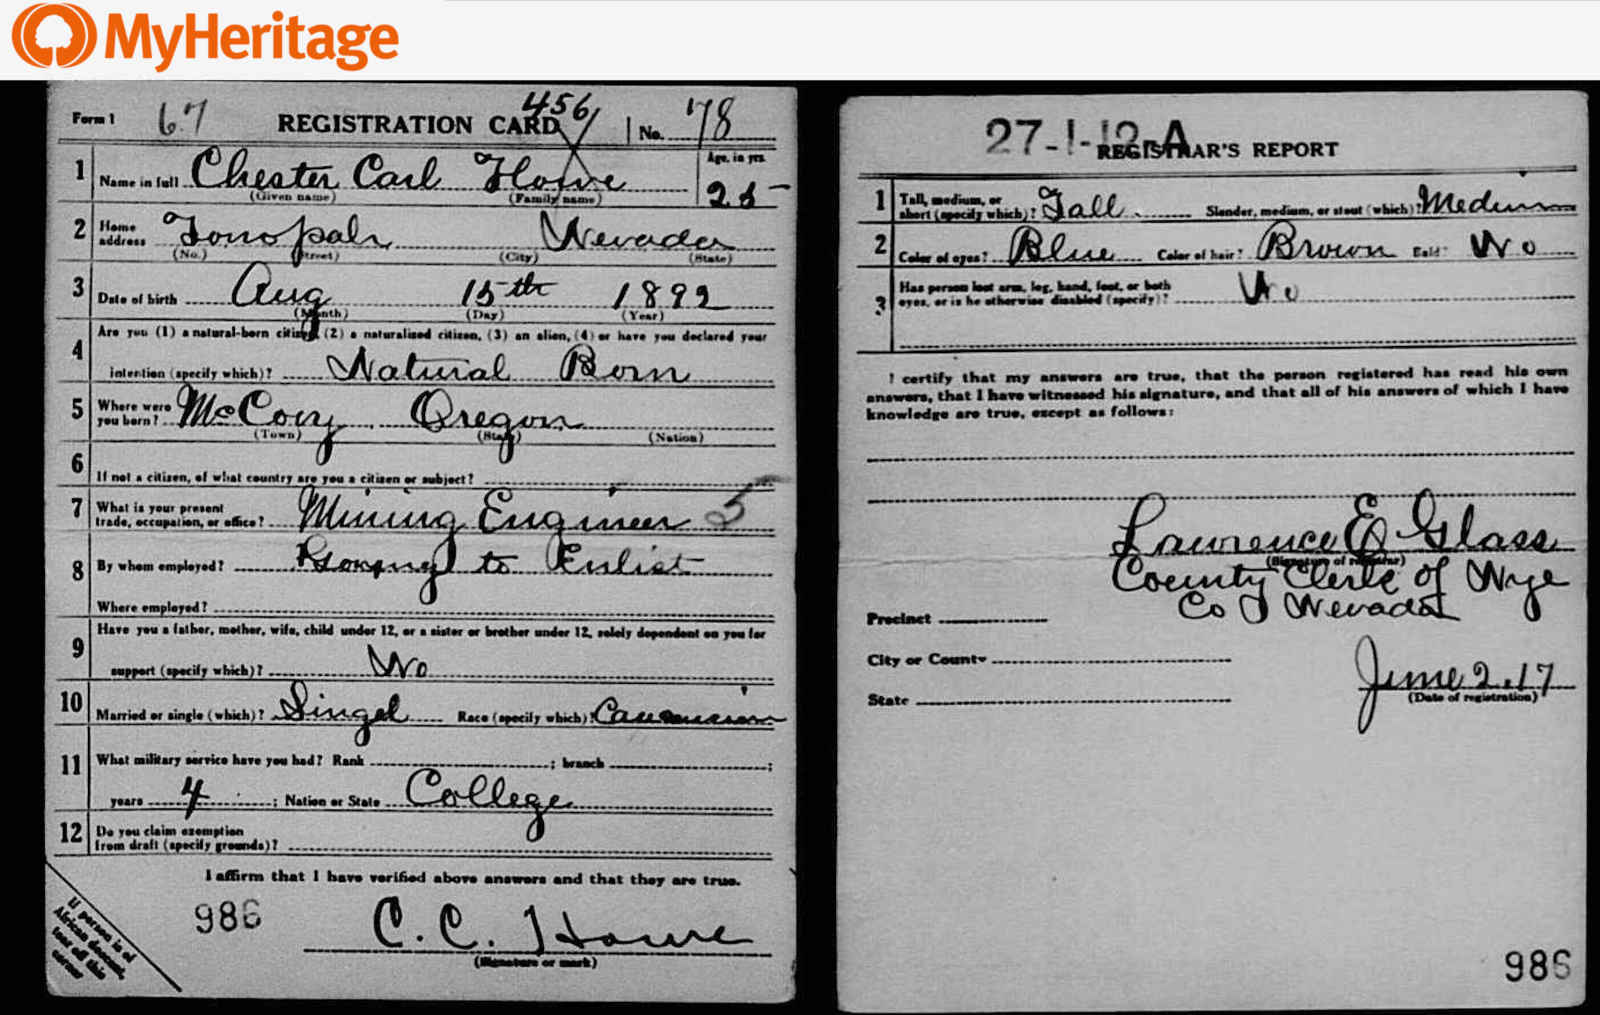 MyHeritage
Form 1 67 REGISTRATION CARD 456 No. 78
1 Name in full Chester Carl Howe Age, in yrs. 25
(Given name) (Family name)
2 Home address Tonopah Nevada
(No.) (Street) (City) (State)
3 Date of birth Aug 15th 1892
(Month) (Day) (Year)
4 Are you (1) a natural-born citizen, (2) a naturalized citizen, (3) an alien, (4) or have you declared your
intention (specify which)? Natural Born
5 Where were you born? McCoy Oregon
(Town) (State) (Nation)
6 If not a citizen, of what country are you a citizen or subject?
7 What is your present trade, occupation, or office? Mining Engineer 5
8 By whom employed? Going to Enlist
Where employed?
9 Have you a father, mother, wife, child under 12, or a sister or brother under 12, solely dependent on you for
support (specify which)? No
10 Married or single (which)? Singel Race (specify which)? Caucasian
11 What military service have you had? Rank ; branch ;
years 4 ; Nation or State College
12 Do you claim exemption from draft (specify grounds)?
I affirm that I have verified above answers and that they are true.
986
C. C. Howe
(Signature or mark)
If person is of
African descent,
tear off this
corner
27-1-12-A
REGISTRAR'S REPORT
1 Tall, medium, or short (specify which)? Tall Slender, medium, or stout (which)? Medium
2 Color of eyes? Blue Color of hair? Brown Bald? No
3 Has person lost arm, leg, hand, foot, or both
eyes, or is he otherwise disabled (specify)? No
I certify that my answers are true, that the person registered has read his own
answers, that I have witnessed his signature, and that all of his answers of which I have
knowledge are true, except as follows:
Lawrence E Glass
(Signature of registrar)
County Clerk of Nye
Co Nevada
Precinct
City or County
State
June 2.17
(Date of registration)
986